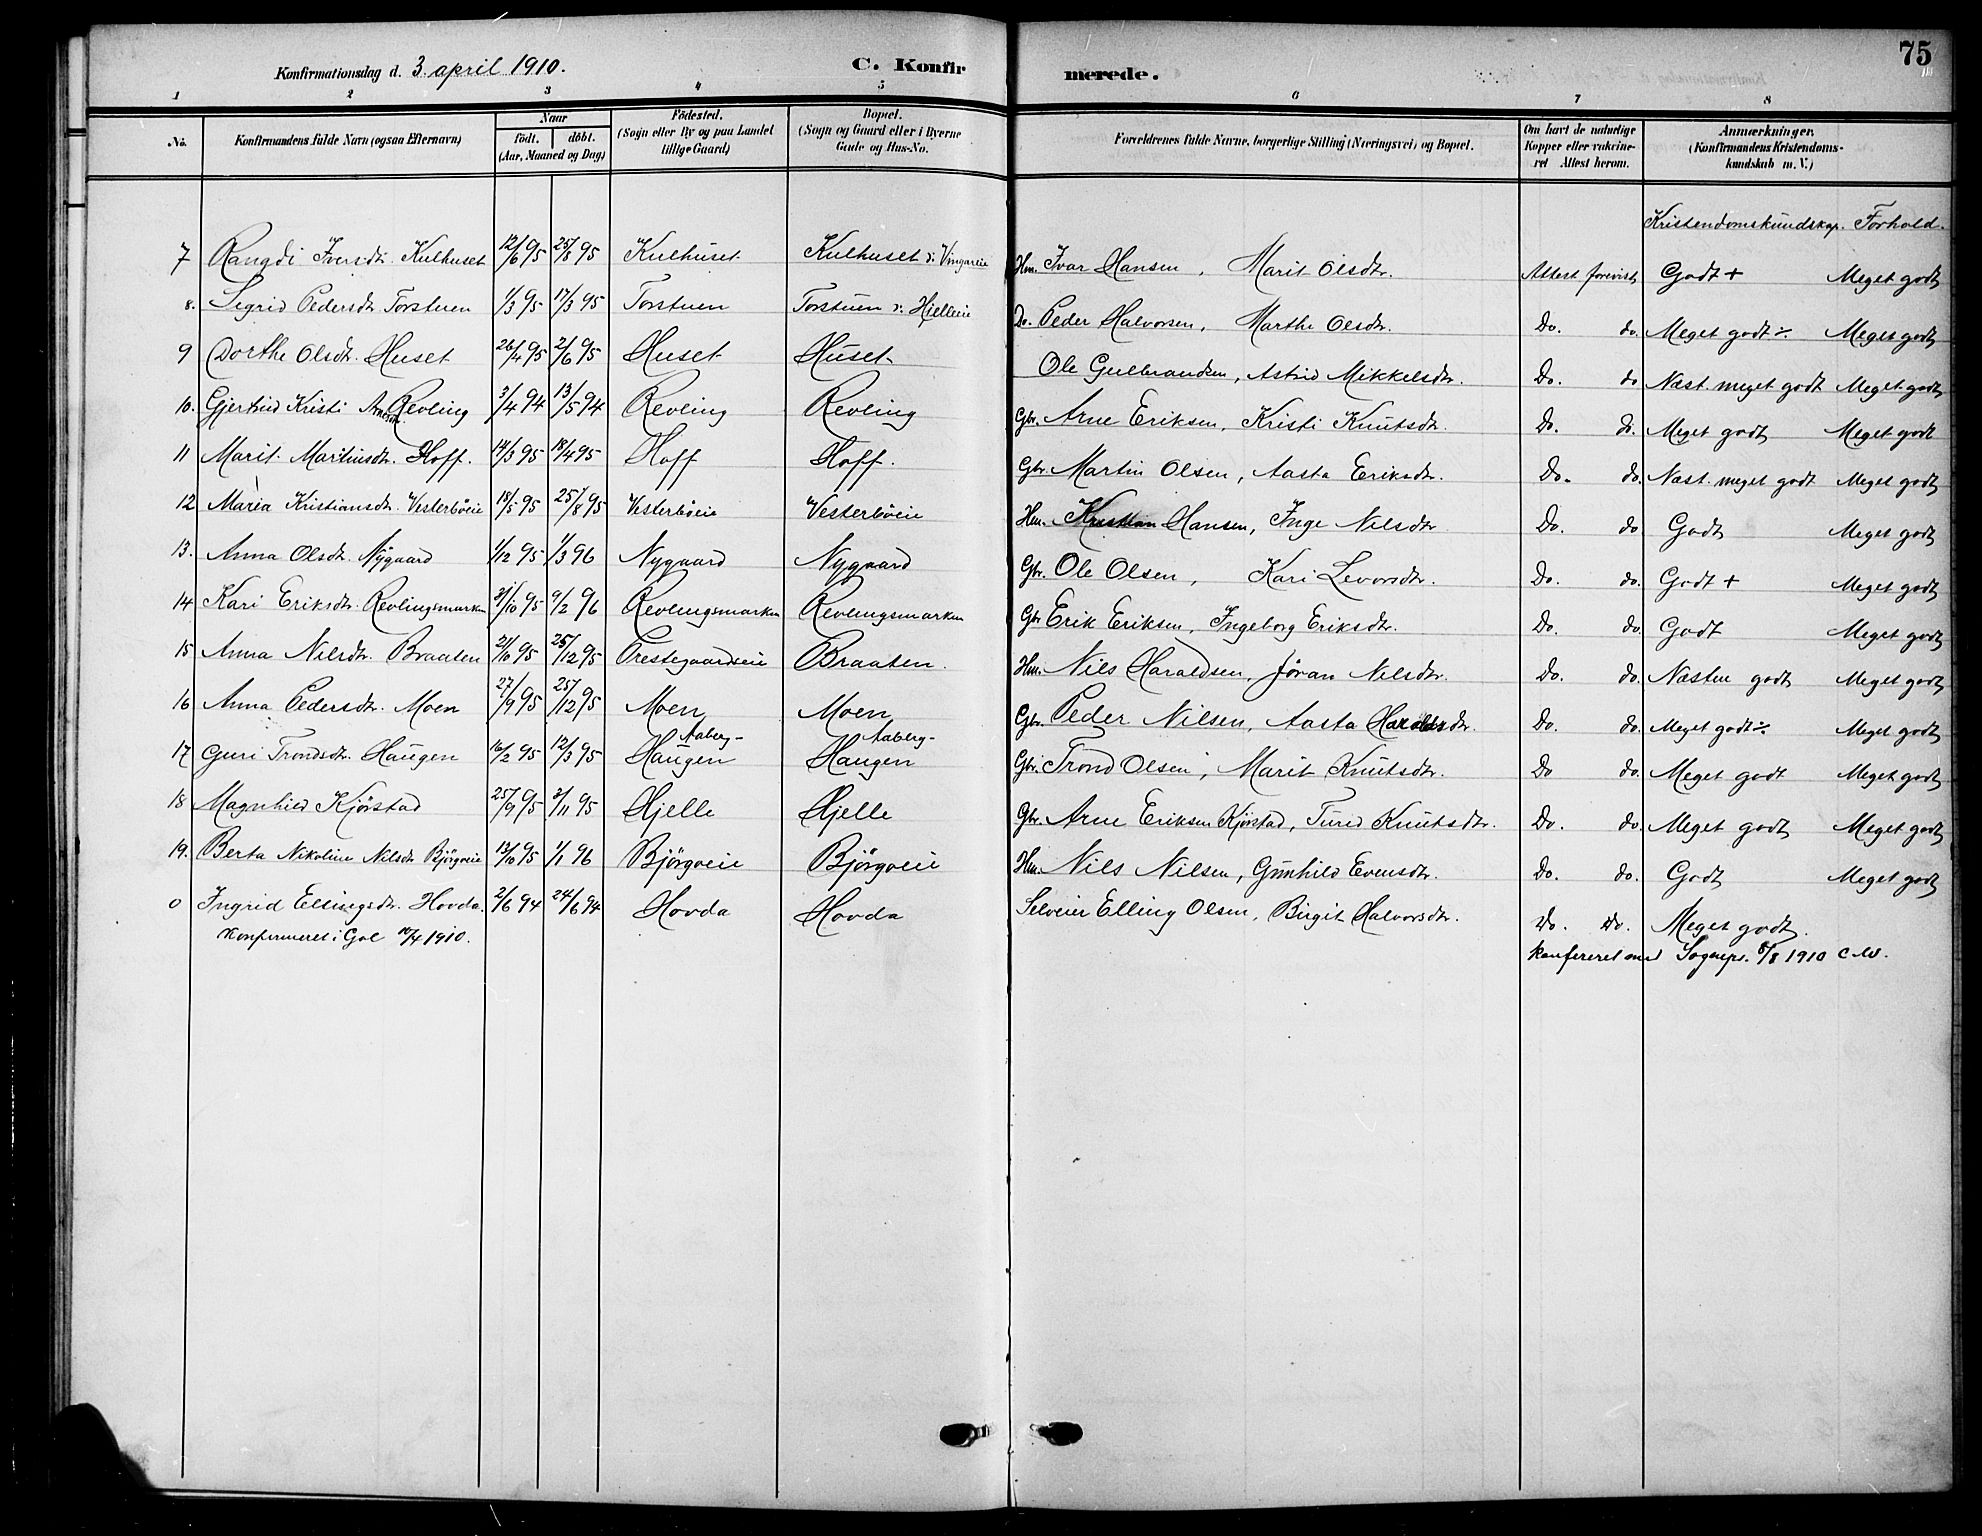 75
Konfirmationsdag d. 3 april 1910.
C. Konfirmerede.
1 2 3 4 5 6 7 8
No.
Konfirmandens fulde Navn (ogsaa Efternavn)
Naar
født. døbt.
(Aar, Maaned og Dag)
Fødested.
(Sogn eller By og paa Landet
tillige Gaard)
Bopæl.
(Sogn og Gaard eller i Byerne
Gade og Hus-No.
Forældrenes fulde Navne, borgerlige Stilling (Næringsvei) og Bopæl.
Om havt de naturlige
Kopper eller vakcine-
ret Attest herom.
Anmærkninger.
(Konfirmandens Kristendoms-
kundskab m. V.)
Kristendomskundskap. Forhold.
7 Rangdi Iversdtr. Kulhuset 12/6 95 25/8 95 Kulhuset Kulhuset v. Vingareie Hm. Ivar Hansen, Marit Olsdtr. Attest forevist Godt + Meget godt
8. Sigrid Pedersdtr. Torstuen 1/3 95 17/3 95 Torstuen Torstuen v. Hjelleeie Do. Peder Halvorsen, Marthe Olsdtr. Do. do. Meget godt ÷ Meget godt
9 Dorthe Olsdtr. Huset 26/4 95 2/6 95 Huset Huset Ole Gulbrandsen, Astrid Mikkelsdtr. Do. do Næst meget godt Meget godt
10. Gjertrud Kristi Arnesdtr. Revling 3/4 94 13/5 94 Revling Revling Gbr. Arne Eriksen, Kristi Knutsdtr. Do. do. Meget godt Meget godt
11 Marit Martinsdtr. Hoff. 14/3 95 18/4 95 Hoff Hoff. Gbr. Martin Olsen, Aasta Eriksdtr. Do. do. Næst meget godt Meget godt
12 Maria Kristiansdtr. Vesterbøeie 18/5 95 25/8 95 Vesterbøeie Vesterbøeie Hm. Kristian Hansen, Inge Nilsdtr Do. do Godt Meget godt
13. Anna Olsdtr. Nygaard 1/12 95 1/3 96 Nygaard Nygaard Gbr. Ole Olsen, Kari Levorsdtr. Do. do. Godt + Meget godt
14 Kari Eriksdtr. Revlingsmarken 31/10 95 9/2 96 Revlingsmarken Revlingsmarken Gbr Erik Eriksen, Ingeborg Eriksdtr. Do. do. Godt Meget godt
15 Anna Nilsdtr. Braaten 21/10 95 25/12 95 Prestegaardseie Braaten. Hm. Nils Haraldsen, Jøran Nilsdtr. Do. do. Næsten godt Meget godt
16 Anna Pedersdtr. Moen 27/9 95 25/12 95 Moen Moen Gbr. Peder Nilsen, Aasta Haraldsdtr. Do. do. Meget godt ÷ Meget godt
17 Guri Trondsdtr. Haugen 16/2 95 12/3 95 Aaberg-Haugen Aaberg-Haugen Gbr. Trond Olsen, Marit Knutsdtr. Do do. Meget godt Meget godt
18 Magnhild Kjørstad 25/9 95 3/11 95 Hjelle Hjelle Gbr. Arne Eriksen Kjørstad, Turid Knutsdtr. Do. do. Meget godt Meget godt
19. Berta Nikoline Nilsdtr Bjørgoeie 13/10 95 1/1 96 Bjørgoeie Bjørgoeie Hm. Nils Nilsen, Gunhild Evensdtr. Do. do. Godt Meget godt
0 Ingrid Ellingsdtr. Hovda. 2/6 94 24/6 94 Hovda Hovda Selveier Elling Olsen, Birgit Halvorsdtr. Do. Do. Meget godt.
Konfirmeret i Gol 10/4 1910.
konfereret med Sognepr. 8/8 1910 C.W.